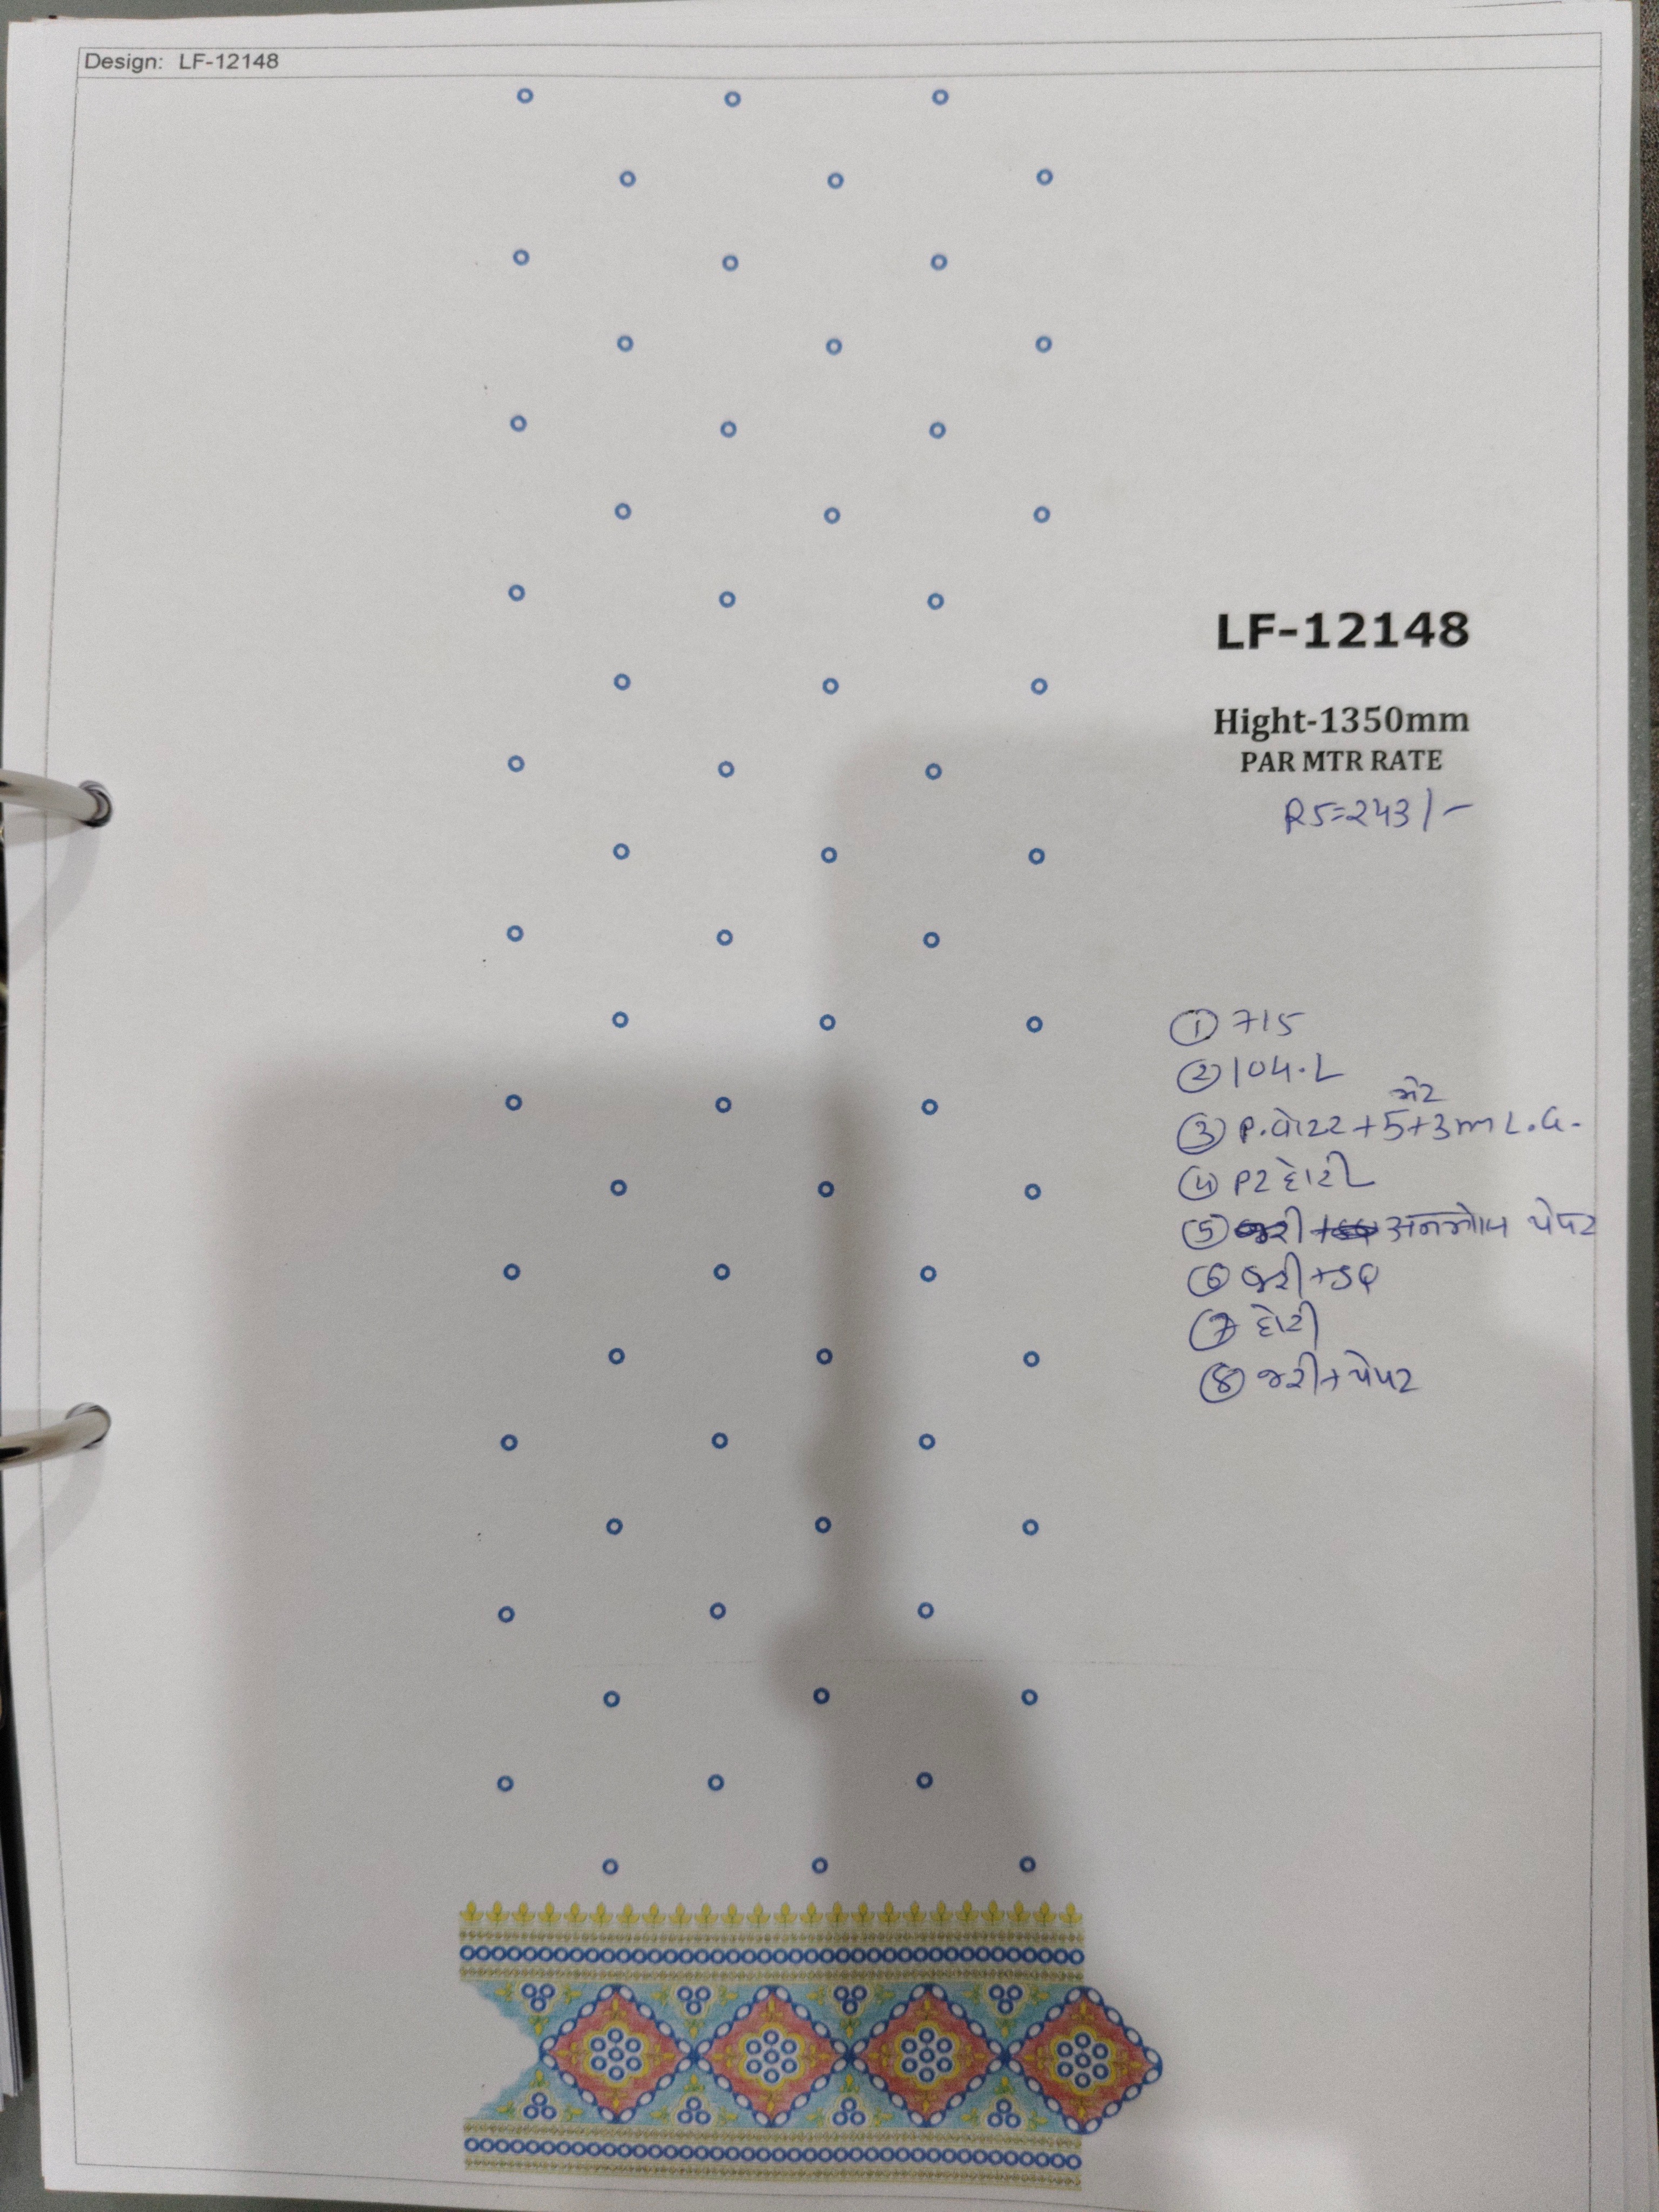 Design: LF-12148
LF-12148
Hight-1350mm
PAR MTR RATE
RS=243/-
① 715
② 104.L
મેટ
③ P.વોટર+5+3mm L.G.
④ P2 દોરી
⑤ પેપર
⑥ જરી+
⑦ દોરી
⑧ જરી+પેપર